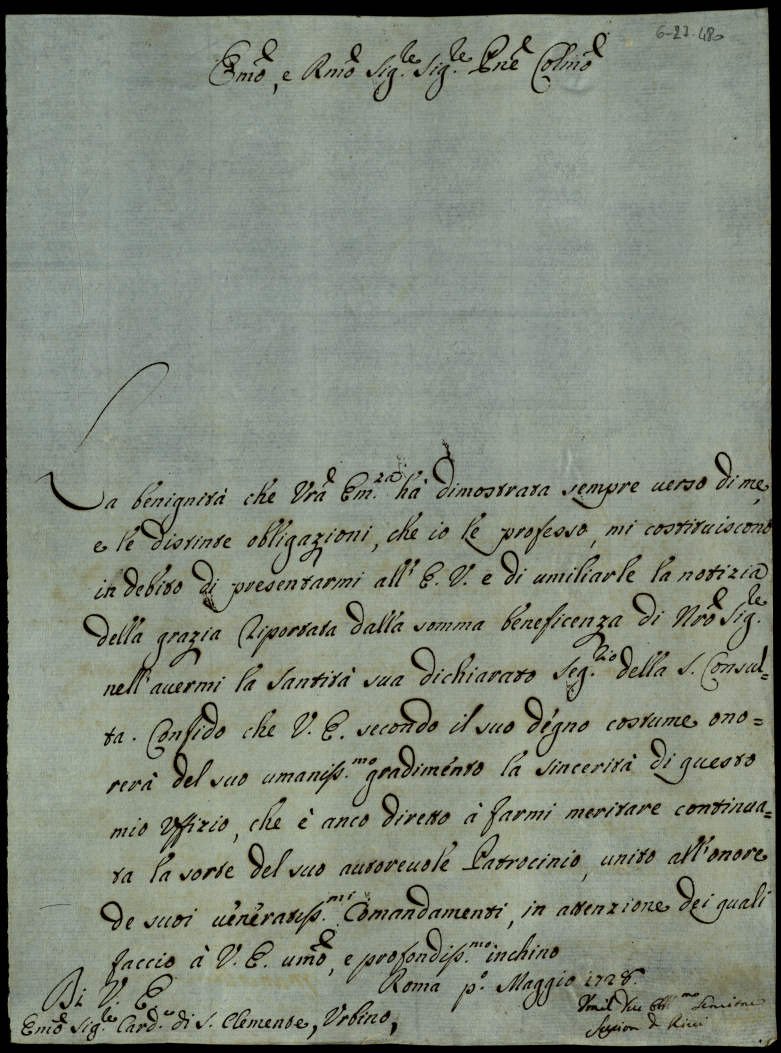 6-27-48
Emo, e Rmo Sig.re Sig.re Pne Colmo
La benignità che Vra Em.za hà dimostrata sempre verso di me,
e le distinte obligazioni, che io le professo, mi costituiscono
in debito di presentarmi all' E. V. e di umiliarle la notizia
della grazia riportata dalla somma beneficenza di Nro Sig.re
nell' avermi la Santità sua dichiarato Seg.rio della S. Consul=
ta. Confido che V. E. secondo il suo degno costume ono=
rerà del suo umaniss.mo gradimento la sincerità di questo
mio Uffizio, che è anco diretto à farmi meritare continua=
ta la sorte del suo autorevole Patrocinio, unito all'onore
de suoi veneratiss.mi Comandamenti, in attenzione dei quali
faccio à V. E. umo, e profondiss.mo inchino
Roma p.o Maggio 1728.
Di V. E.
Emo Sig.re Card.e di S. Clemente, Urbino,